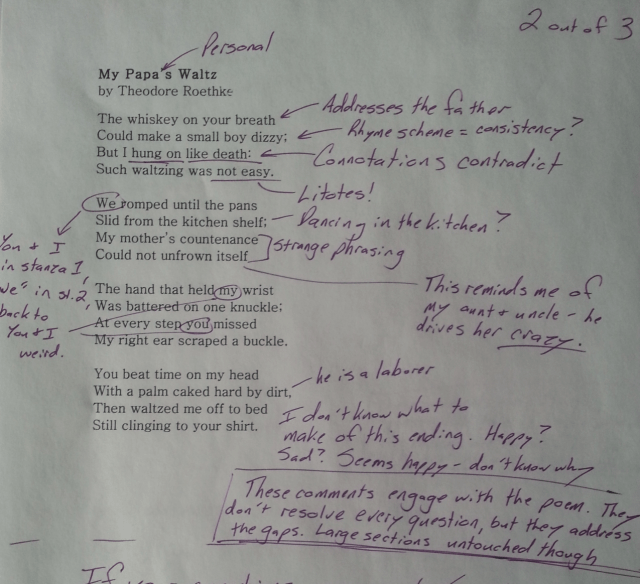 2 out of 3
Personal
My Papa's Waltz
by Theodore Roethke
The whiskey on your breath
Could make a small boy dizzy;
But I hung on like death:
Such waltzing was not easy.
Addresses the father
Rhyme scheme = consistency?
Connotations contradict
Litotes!
We romped until the pans
Slid from the kitchen shelf;
My mother's countenance
Could not unfrown itself
Dancing in the kitchen?
Strange phrasing
You & I
in stanza 1,
"We" in st. 2,
back to
You & I
weird.
This reminds me of
my aunt & uncle - he
drives her crazy.
The hand that held my wrist
Was battered on one knuckle;
At every step you missed
My right ear scraped a buckle.
You beat time on my head
With a palm caked hard by dirt,
Then waltzed me off to bed
Still clinging to your shirt.
he is a laborer
I don't know what to
make of this ending. Happy?
Sad? Seems happy - don't know why
These comments engage with the poem. They
don't resolve every question, but they address
the gaps. Large sections untouched though
If